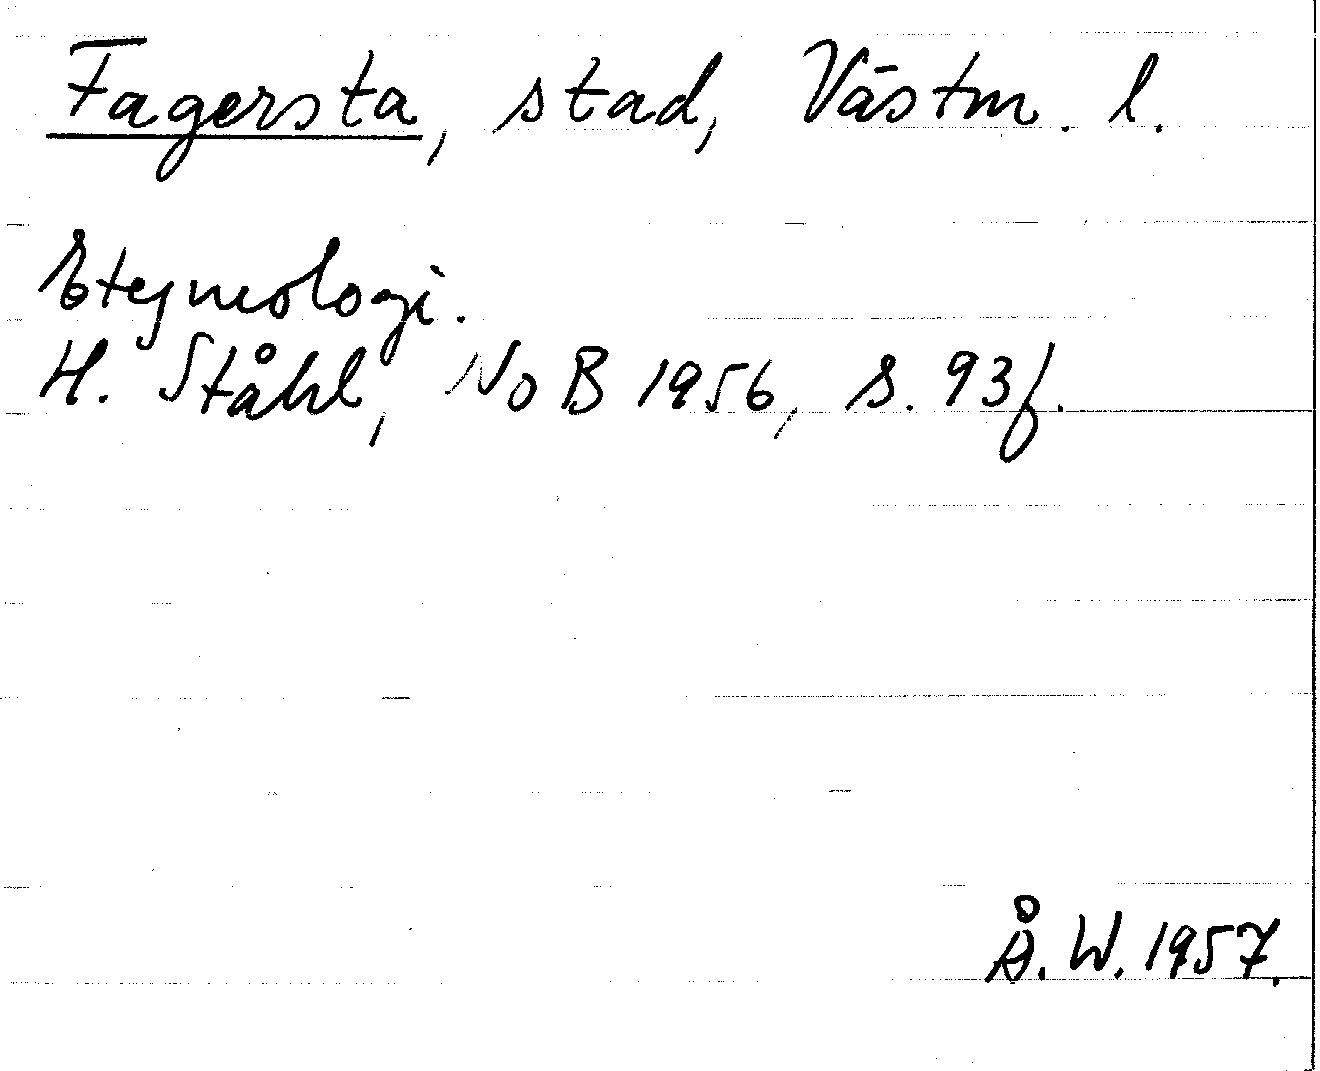 Fagersta, stad, Västm. l.
Etymologi.
H. Ståhl, NoB 1956, s. 93f.
Å. W. 1957.